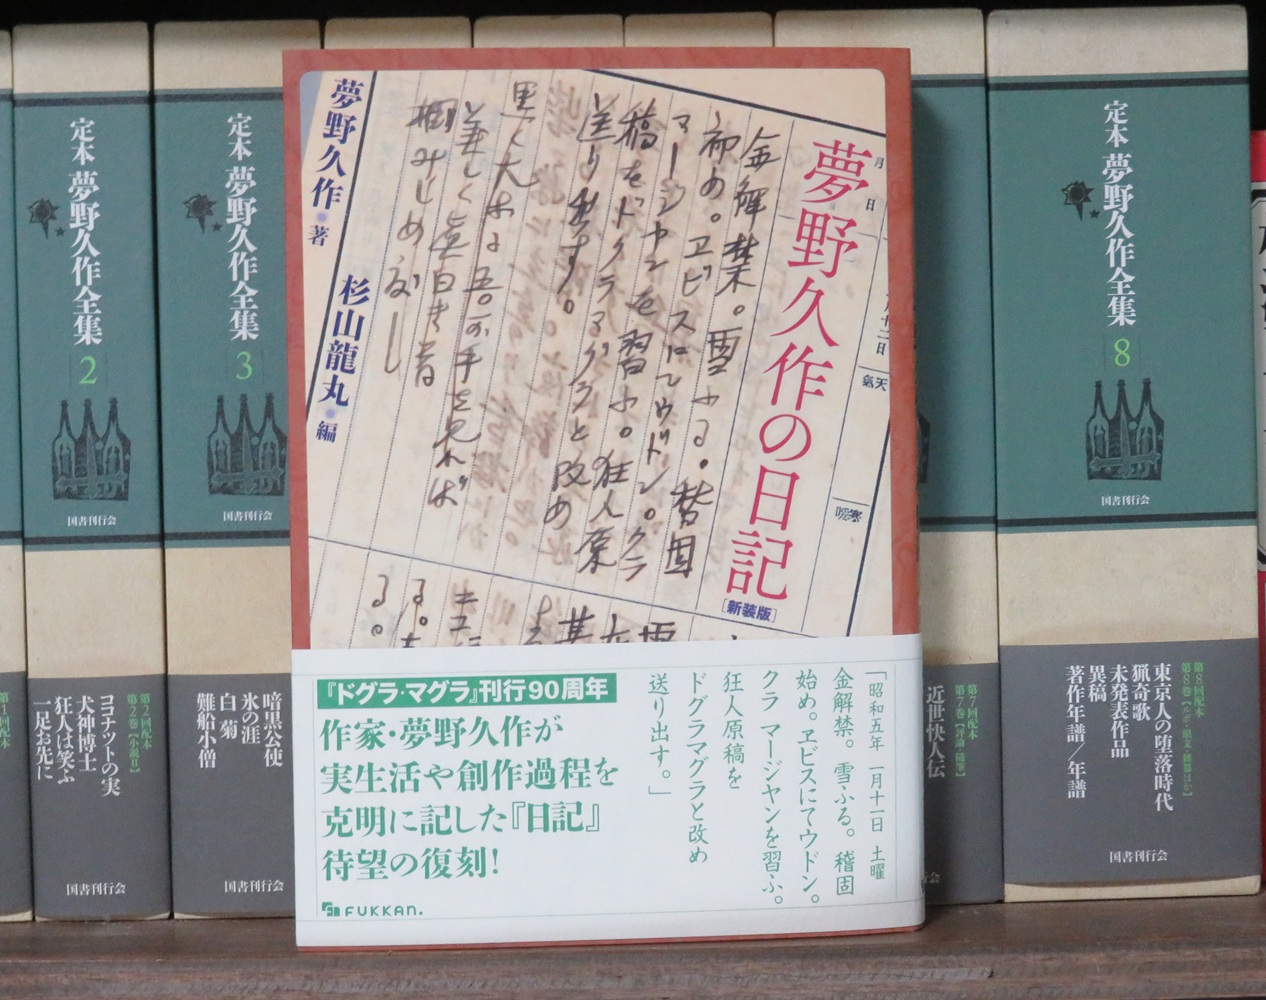 夢野久作の日記
［新装版］
夢野久作・著
杉山龍丸・編
月
日
天氣
寒暖
金解禁。雪ふる。稽固
初め。ヱビスにてウドン。クラ
マージヤンを習ふ。狂人原
稿をドグラマグラと改め
送り出す。
黒く大なる吾が手を見れば
美しく真白き首
掴みしめ度し
『ドグラ・マグラ』刊行90周年
作家・夢野久作が
実生活や創作過程を
克明に記した『日記』
待望の復刻！
FUKKAN.
「昭和五年 一月十一日 土曜
金解禁。雪ふる。稽固
始め。ヱビスにてウドン。
クラ マージヤンを習ふ。
狂人原稿を
ドグラマグラと改め
送り出す。」
定本 夢野久作全集
2
国書刊行会
第2回配本
第2巻【小説Ⅱ】
ココナットの実
犬神博士
狂人は笑ふ
一足お先に
国書刊行会
定本 夢野久作全集
3
国書刊行会
暗黒公使
氷の涯
白菊
難船小僧
国書刊行会
第7回配本
第7巻【評論・随筆】
近世快人伝
定本 夢野久作全集
8
国書刊行会
第8回配本
東京人の堕落時代
猟奇歌
未発表作品
異稿
著作年譜／年譜
国書刊行会
第1回配本